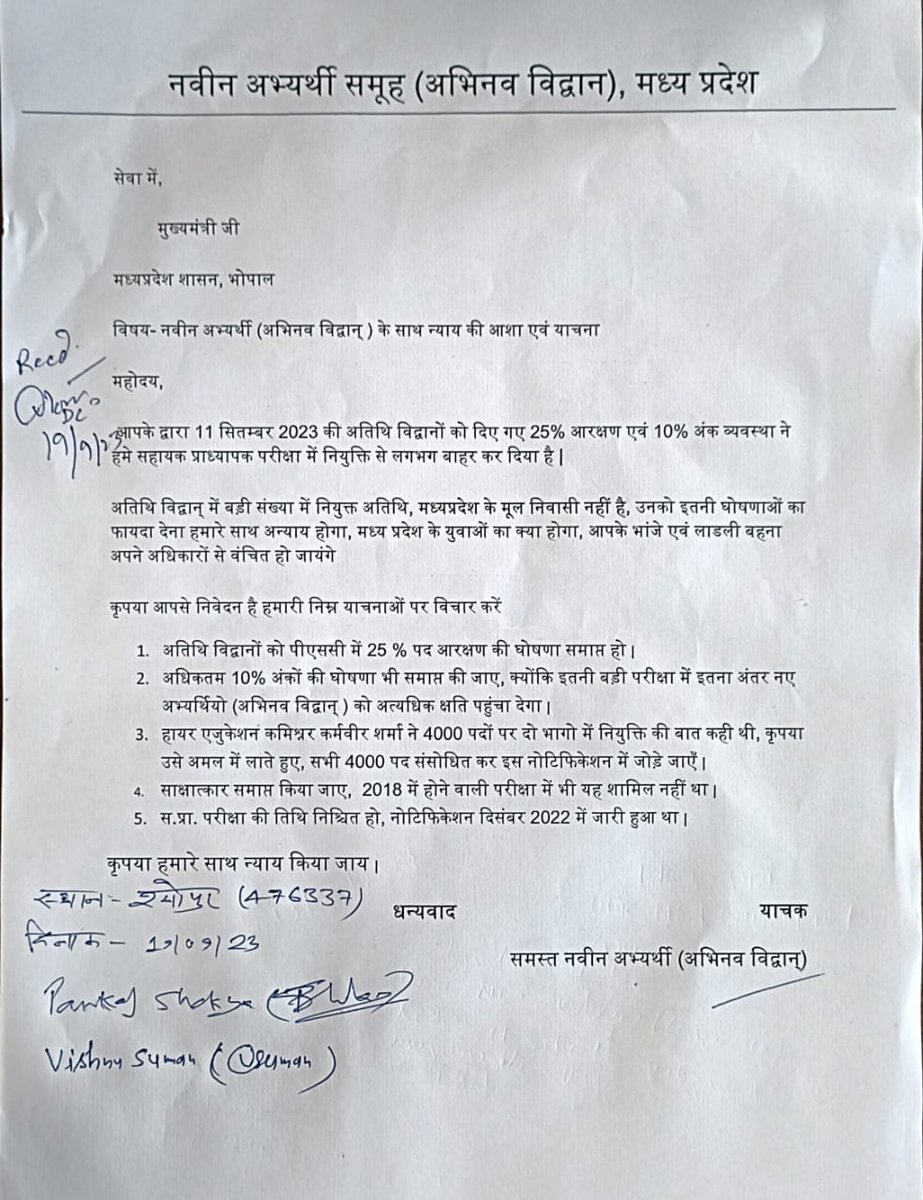 नवीन अभ्यर्थी समूह (अभिनव विद्वान), मध्य प्रदेश
सेवा में,
मुख्यमंत्री जी
मध्यप्रदेश शासन, भोपाल
विषय- नवीन अभ्यर्थी (अभिनव विद्वान् ) के साथ न्याय की आशा एवं याचना
Recd.
महोदय,
19/9/23
आपके द्वारा 11 सितम्बर 2023 की अतिथि विद्वानों को दिए गए 25% आरक्षण एवं 10% अंक व्यवस्था ने
हमे सहायक प्राध्यापक परीक्षा में नियुक्ति से लगभग बाहर कर दिया है |
अतिथि विद्वान् में बड़ी संख्या में नियुक्त अतिथि, मध्यप्रदेश के मूल निवासी नहीं है, उनको इतनी घोषणाओं का
फायदा देना हमारे साथ अन्याय होगा, मध्य प्रदेश के युवाओं का क्या होगा, आपके भांजे एवं लाडली बहना
अपने अधिकारों से वंचित हो जायंगे
कृपया आपसे निवेदन है हमारी निम्न याचनाओं पर विचार करें
1. अतिथि विद्वानों को पीएससी में 25 % पद आरक्षण की घोषणा समाप्त हो |
2. अधिकतम 10% अंकों की घोषणा भी समाप्त की जाए, क्योंकि इतनी बड़ी परीक्षा में इतना अंतर नए
अभ्यर्थियो (अभिनव विद्वान् ) को अत्यधिक क्षति पहुंचा देगा |
3. हायर एजुकेशन कमिश्नर कर्मवीर शर्मा ने 4000 पदों पर दो भागो में नियुक्ति की बात कही थी, कृपया
उसे अमल में लाते हुए, सभी 4000 पद संसोधित कर इस नोटिफिकेशन में जोड़े जाएँ |
4. साक्षात्कार समाप्त किया जाए, 2018 में होने वाली परीक्षा में भी यह शामिल नहीं था |
5. स.प्रा. परीक्षा की तिथि निश्चित हो, नोटिफिकेशन दिसंबर 2022 में जारी हुआ था |
कृपया हमारे साथ न्याय किया जाय |
स्थान:- श्योपुर (476337)
धन्यवाद याचक
दिनांक - 19/09/23
समस्त नवीन अभ्यर्थी (अभिनव विद्वान्)
Pankaj Shakya
Vishnu Suman (Vsuman)